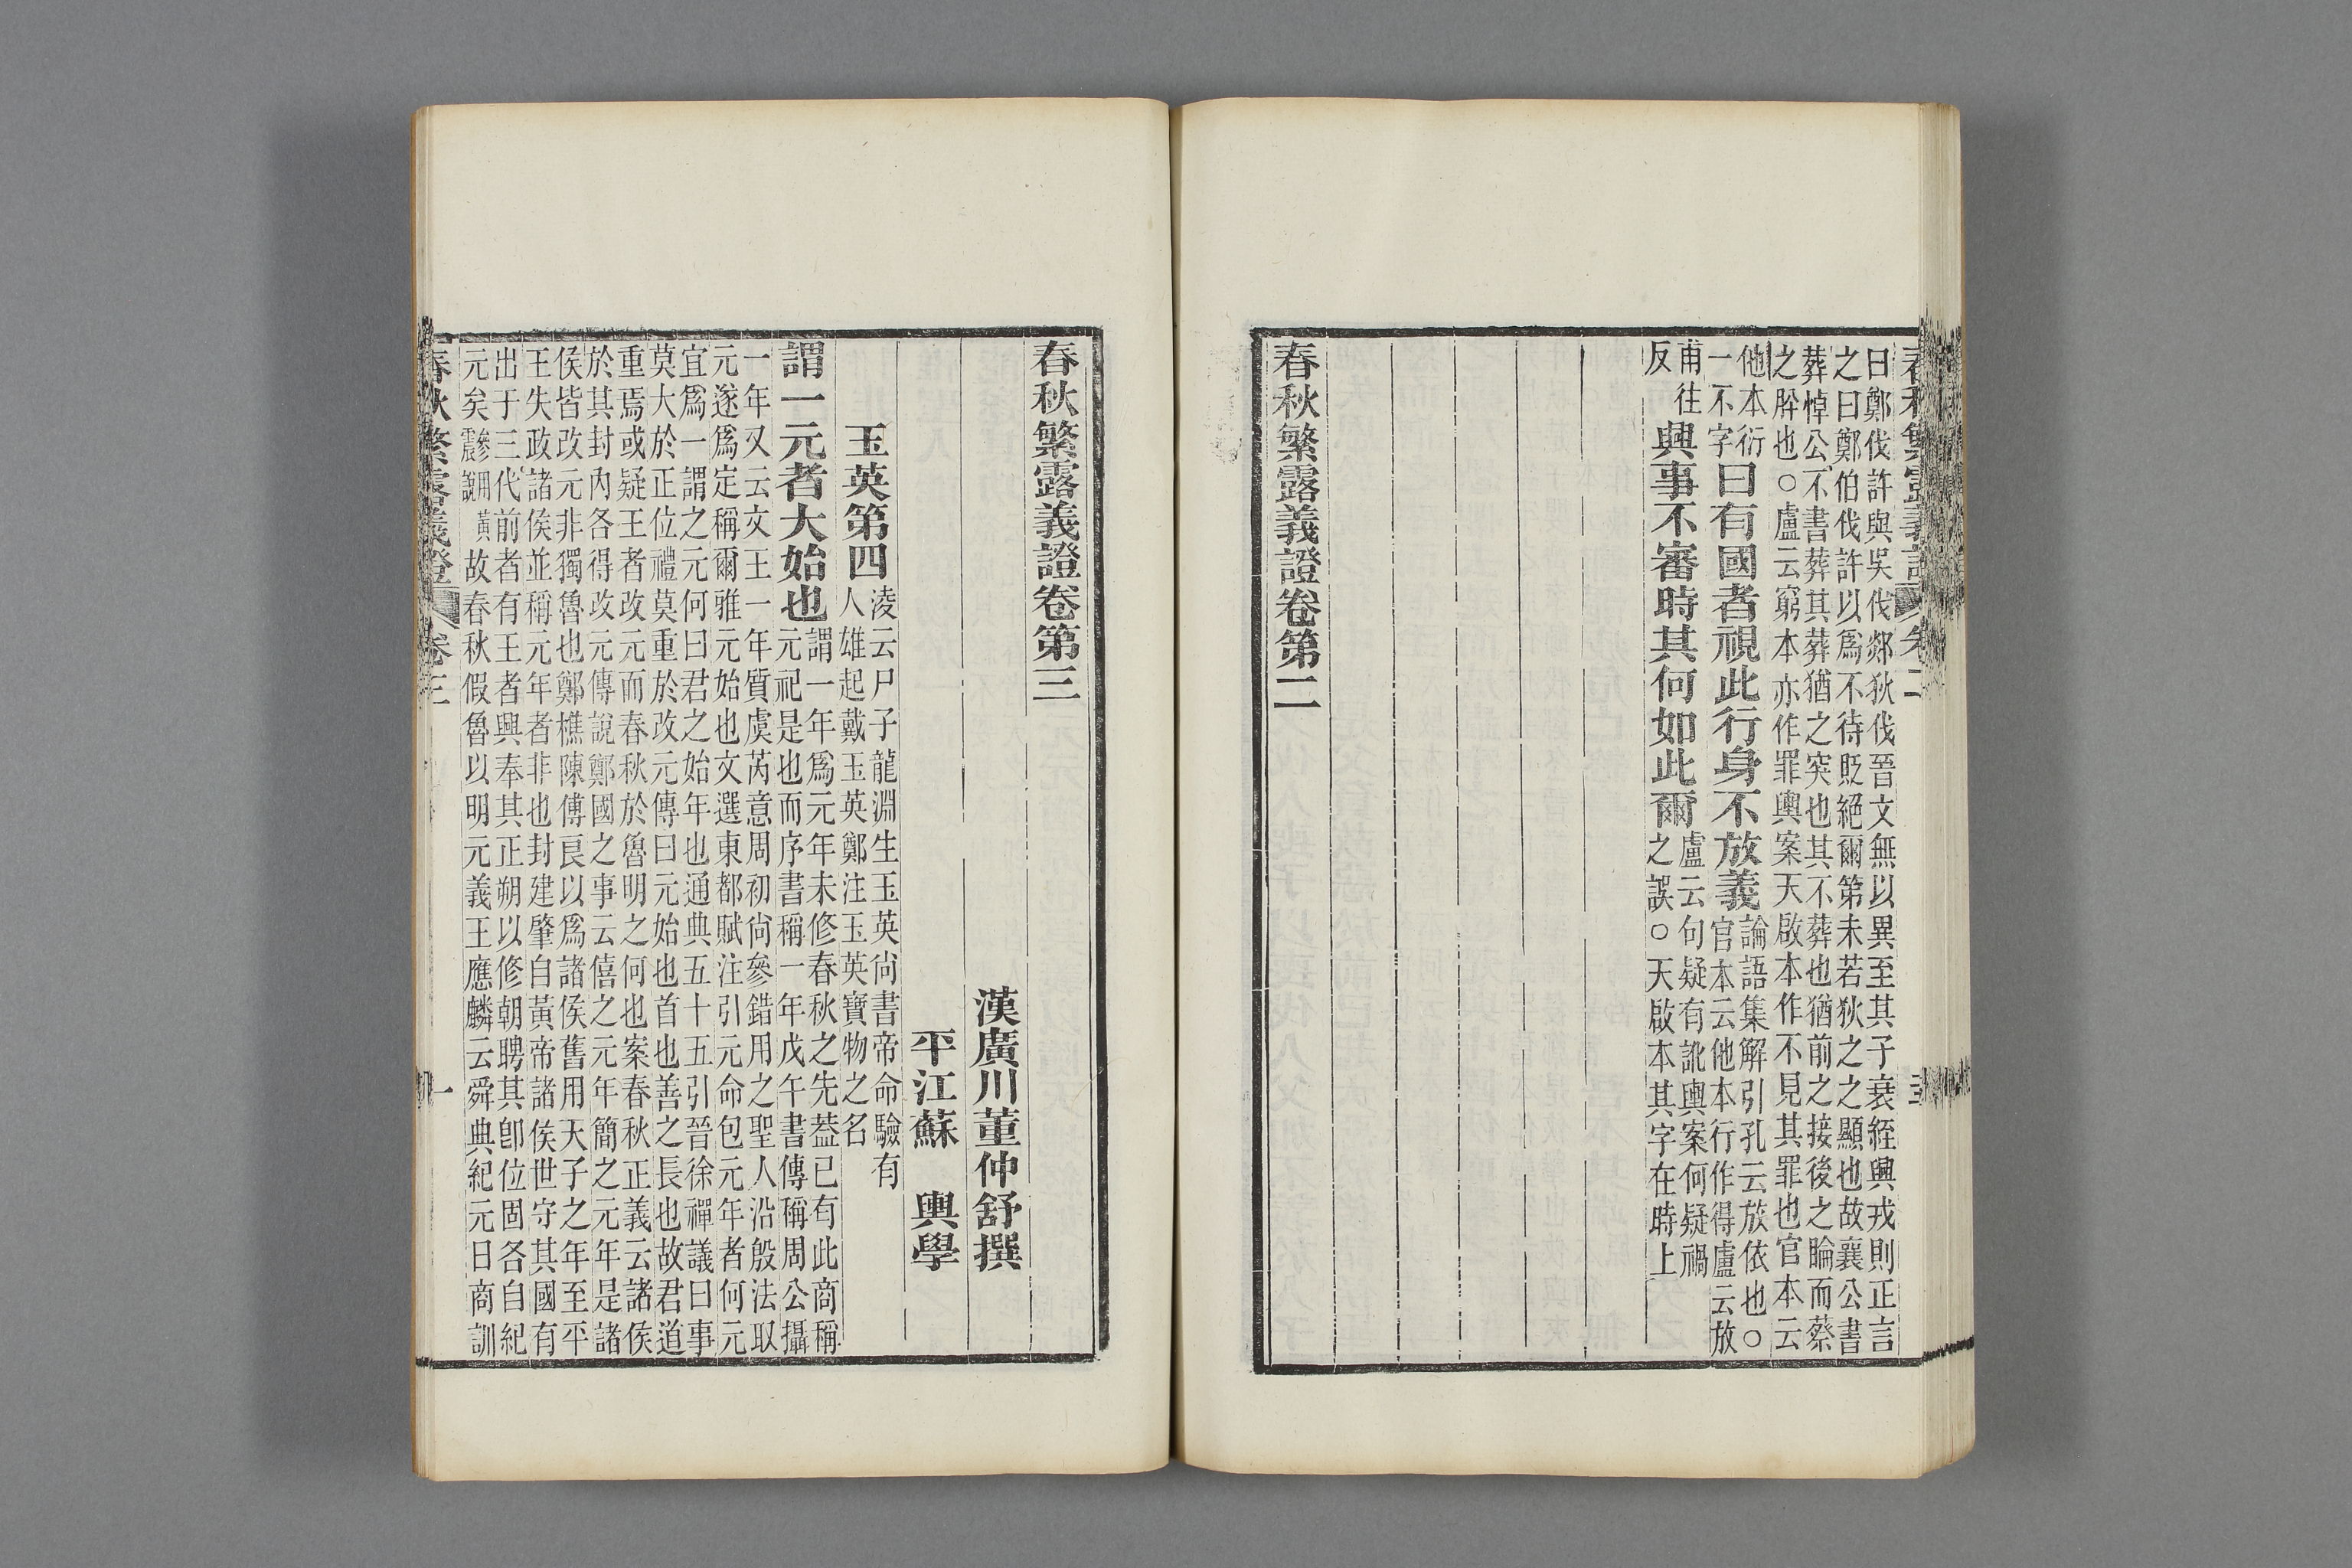 曰鄭伐許與吳伐郯狄伐晉文無以異至其子衰絰興戎則正言
之曰鄭伯伐許以爲不待貶絕爾第未若狄之之顯也故襄公書
葬悼公不書葬其葬猶之突也其不葬也猶前之接後之睔而蔡
之肸也○盧云窮本亦作罪輿案天啟本作不見其罪也官本云
他本衍
一不字
曰有國者視此行身不放義
論語集解引孔云放依也○
官本云他本行作得盧云放
甫往
反
興事不審時其何如此爾
盧云句疑有訛輿案何疑禍
之誤○天啟本其字在時上
春秋繁露義證卷第二
春秋繁露義證卷第三
漢廣川董仲舒撰
平江蘇 輿學
玉英第四
淩云尸子龍淵生玉英尙書帝命驗有
人雄起戴玉英鄭注玉英寶物之名
謂一元者大始也
謂一年爲元年未修春秋之先蓋已有此商稱
元祀是也而序書稱一年戊午書傳稱周公攝
一年又云文王一年質虞芮意周初尙參錯用之聖人沿殷法取
元遂爲定稱爾雅元始也文選東都賦注引元命包元年者何元
宜爲一謂之元何曰君之始年也通典五十五引晉徐禪議曰事
莫大於正位禮莫重於改元傳曰元始也首也善之長也故君道
重焉或疑王者改元而春秋於魯明之何也案春秋正義云諸侯
於其封內各得改元傳說鄭國之事云僖之元年簡之元年是諸
侯皆改元非獨魯也鄭樵陳傅良以爲諸侯舊用天子之年至平
王失政諸侯並稱元年者非也封建肇自黃帝諸侯世守其國有
出于三代前者有王者興奉其正朔以修朝聘其卽位固各自紀
元矣參用黃震說故春秋假魯以明元義王應麟云舜典紀元日商訓
春秋繁露義證 卷三 一